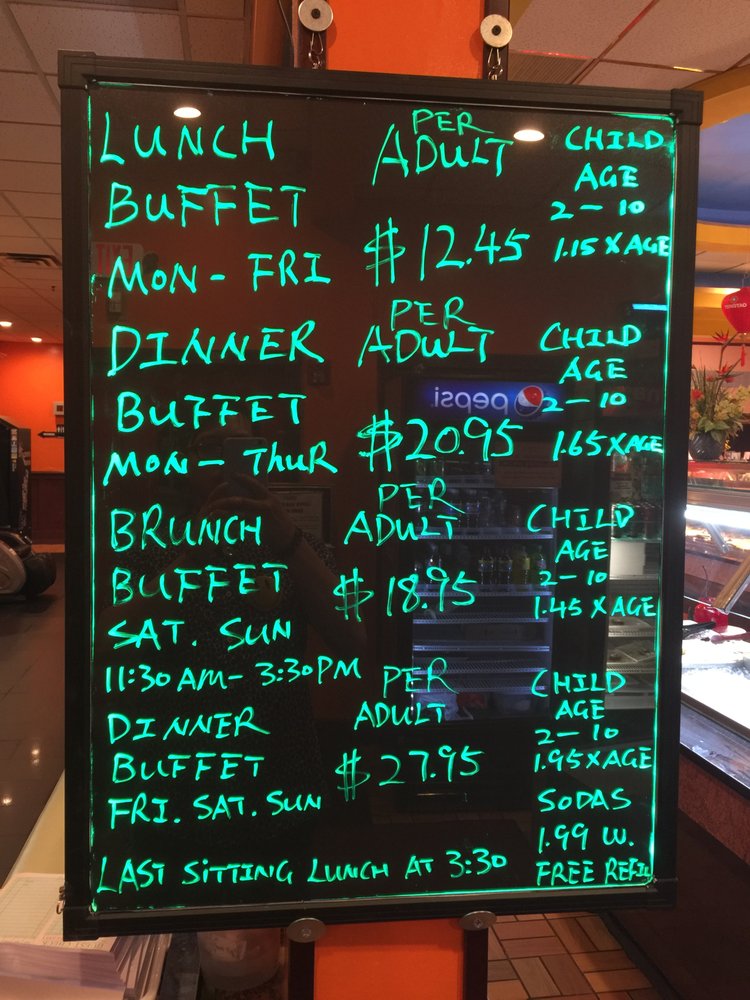 LUNCH PER ADULT CHILD
BUFFET AGE
2-10
MON-FRI $12.45 1.15 X AGE
DINNER PER ADULT CHILD
AGE
BUFFET 2-10
MON-THUR $20.95 1.65 X AGE
BRUNCH PER ADULT CHILD
AGE
BUFFET $18.95 2-10
SAT. SUN 1.45 X AGE
11:30 AM-3:30 PM PER CHILD
DINNER ADULT AGE
2-10
BUFFET $27.95 1.95 X AGE
FRI. SAT. SUN SODAS
1.99 W.
LAST SITTING LUNCH AT 3:30 FREE REFIL
pepsi
EXIT